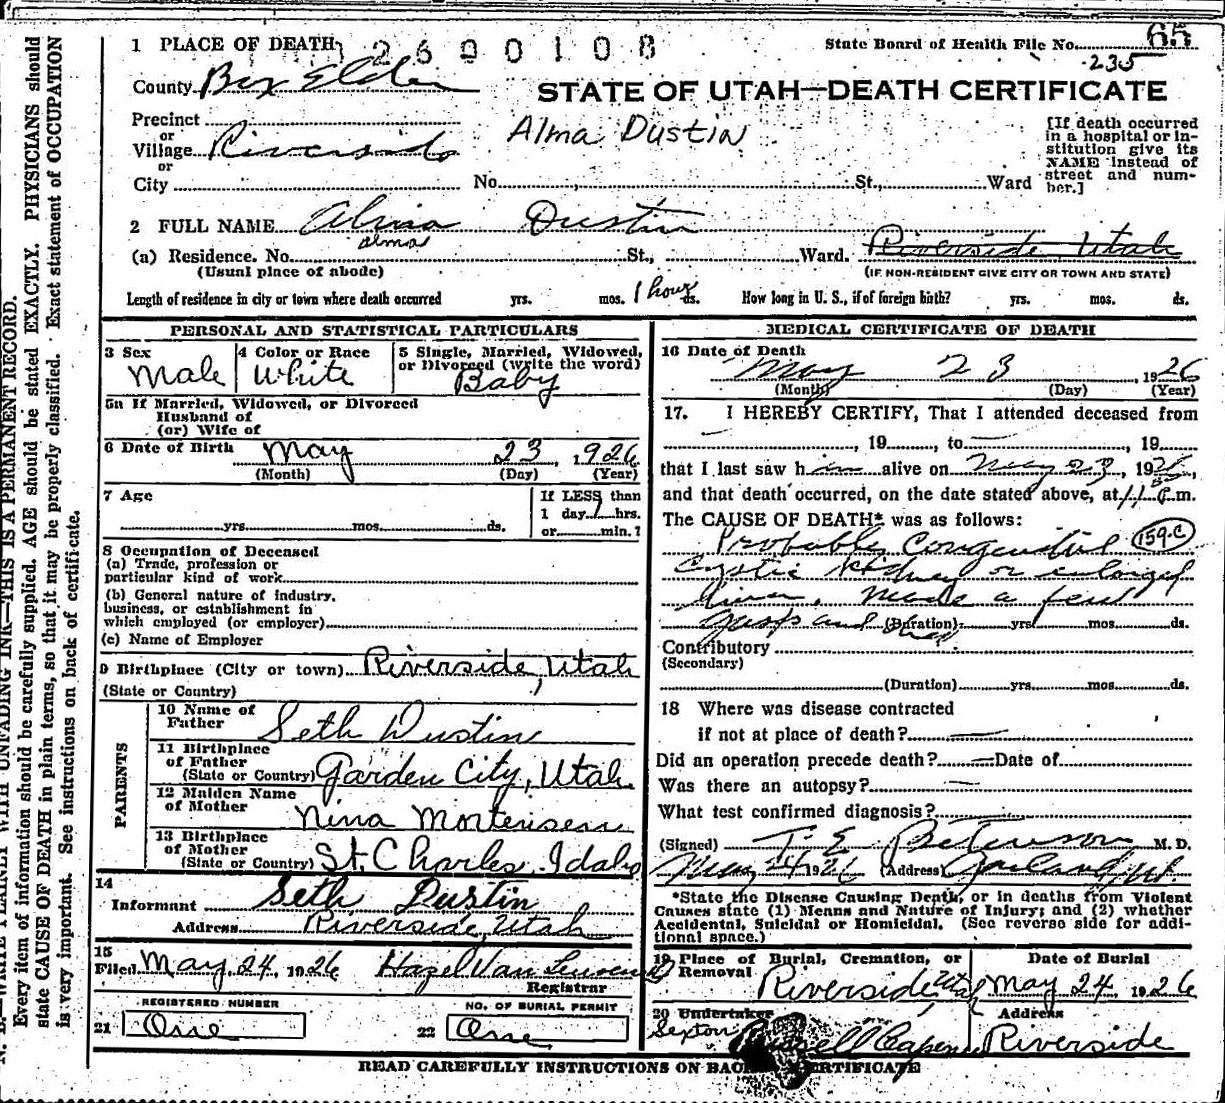 1 PLACE OF DEATH
2600108
State Board of Health File No. 65
235
County Box Elder
STATE OF UTAH—DEATH CERTIFICATE
Precinct
or
Village Riverside
or
City No. St., Ward
Alma Dustin
[If death occurred
in a hospital or in-
stitution give its
NAME instead of
street and num-
ber.]
2 FULL NAME Alma Dustin
alma
(a) Residence. No. St., Ward. Riverside Utah
(Usual place of abode)
(IF NON-RESIDENT GIVE CITY OR TOWN AND STATE)
Length of residence in city or town where death occurred yrs. mos. 1 hour ds. How long in U. S., if of foreign birth? yrs. mos. ds.
PERSONAL AND STATISTICAL PARTICULARS
3 Sex
Male
4 Color or Race
White
5 Single, Married, Widowed,
or Divorced (write the word)
Baby
5a If Married, Widowed, or Divorced
Husband of
(or) Wife of
6 Date of Birth May 23, 1926
(Month) (Day) (Year)
7 Age
yrs. mos. ds.
If LESS than
1 day, 1 hrs.
or min.?
8 Occupation of Deceased
(a) Trade, profession or
particular kind of work
(b) General nature of industry,
business, or establishment in
which employed (or employer)
(c) Name of Employer
9 Birthplace (City or town) Riverside, Utah
(State or Country)
PARENTS
10 Name of
Father Seth Dustin
11 Birthplace
of Father
(State or Country) Garden City, Utah
12 Maiden Name
of Mother Nina Mortensen
13 Birthplace
of Mother
(State or Country) St. Charles, Idaho
14
Informant Seth Dustin
Address Riverside, Utah
15
Filed May 24, 1926 Hazel Van
Registrar
REGISTERED NUMBER
21 One
NO. OF BURIAL PERMIT
22 One
MEDICAL CERTIFICATE OF DEATH
16 Date of Death
May 23, 1926
(Month) (Day) (Year)
17. I HEREBY CERTIFY, That I attended deceased from
, 19 , to , 19
that I last saw him alive on May 23, 1926,
and that death occurred, on the date stated above, at 11 P.m.
The CAUSE OF DEATH* was as follows:
Probable Congenital 159-C
cystic Kidney or enlarged
liver. Made a few
gasps and died
(Duration) yrs. mos. ds.
Contributory
(Secondary)
(Duration) yrs. mos. ds.
18 Where was disease contracted
if not at place of death?
Did an operation precede death? Date of
Was there an autopsy?
What test confirmed diagnosis?
(Signed) T. E. Peterson M. D.
May 24 1926 (Address) Garland, Ut
*State the Disease Causing Death, or in deaths from Violent
Causes state (1) Means and Nature of Injury; and (2) whether
Accidental, Suicidal or Homicidal. (See reverse side for addi-
tional space.)
19 Place of Burial, Cremation, or
Removal
Riverside, Utah
Date of Burial
May 24, 1926
20 Undertaker
Sexton Russell Capener
Address
Riverside
READ CAREFULLY INSTRUCTIONS ON BACK CERTIFICATE
WRITE PLAINLY WITH UNFADING INK—THIS IS A PERMANENT RECORD.
Every item of information should be carefully supplied. AGE should be stated EXACTLY. PHYSICIANS should
state CAUSE OF DEATH in plain terms, so that it may be properly classified. Exact statement of OCCUPATION
is very important. See instructions on back of certificate.